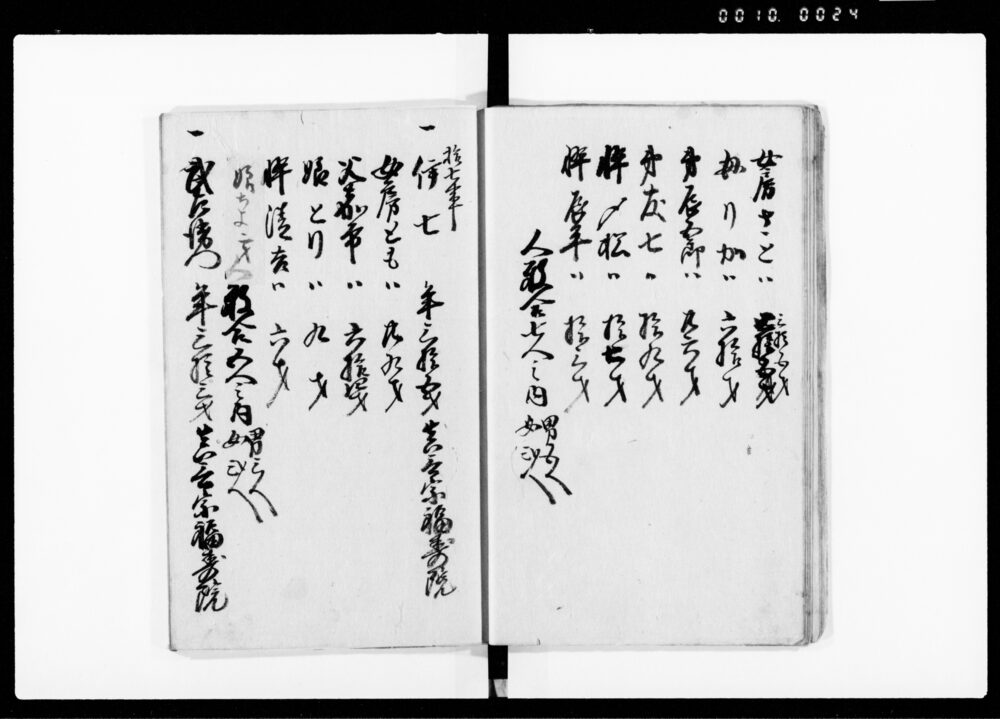 0010. 0024
女房さと〃 三拾五才
母りか〃 六拾才
弟辰五郎〃 廿六才
弟友七〃 拾九才
倅〆松〃 拾七才
倅辰平〃 拾三才
人数合七人之内 男五人
女弐人
一 伝七 年三拾五才 真言宗福寿院
女房とも〃 廿九才
父嘉市〃 六拾四才
娘とり〃 九才
倅清吉〃 六才
娘ちよ 二才
人数合六人之内 男三人
女三人
一 武左衛門 年三拾三才 真言宗福寿院